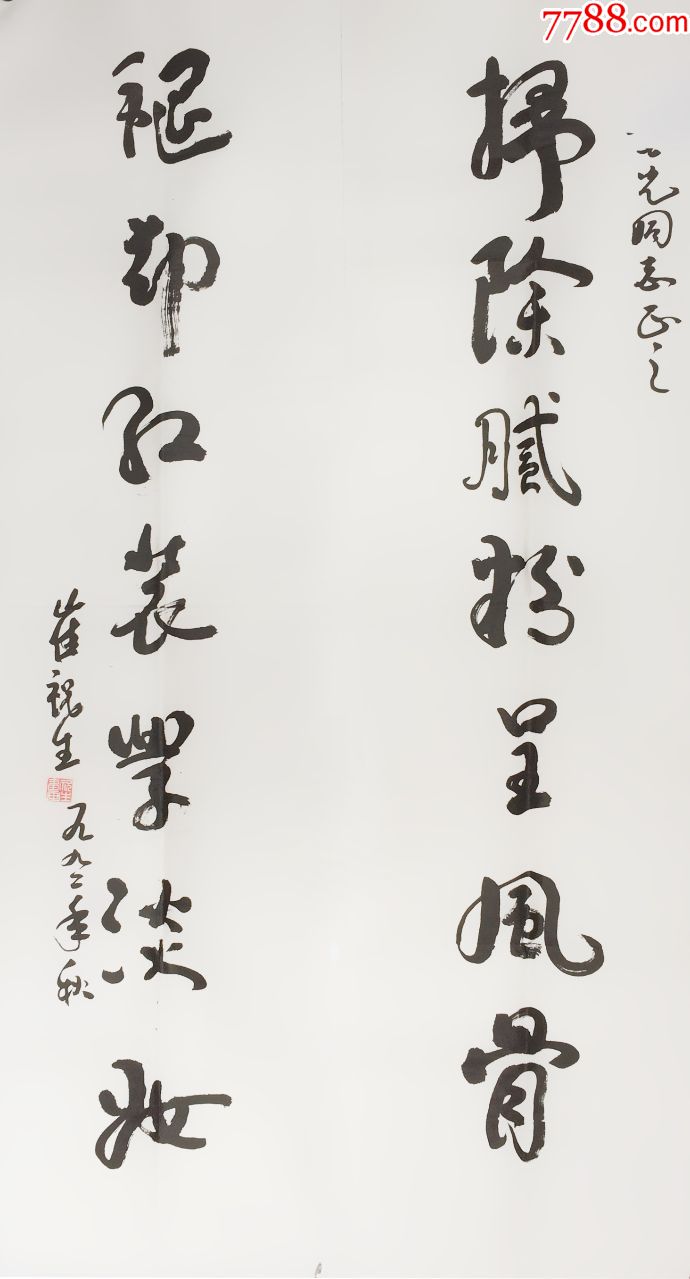 7788.com
光同志正之
掃除膩粉呈風骨
褪却紅裝學淡妝
崔祝生
一九九二年秋